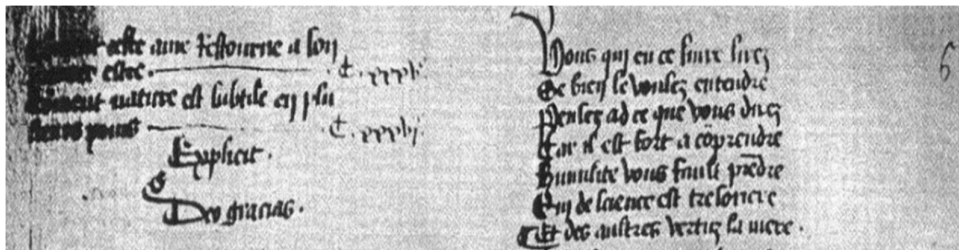 ceste ame restourne a son
premier estre. C. xxxxv.
Coment nature est subtile en plu
sieurs poins C. xxxxvj.
Explicit.
Deo gracias.
6
Vous qui en ce livre lirez
Se bien le voulez entendre
Pensez ad ce que vous direz
Car il est fort a cōprendre
Humilite vous fault prēdre
Qui de science est tresoriere
Et des aultres vertuz la mere.